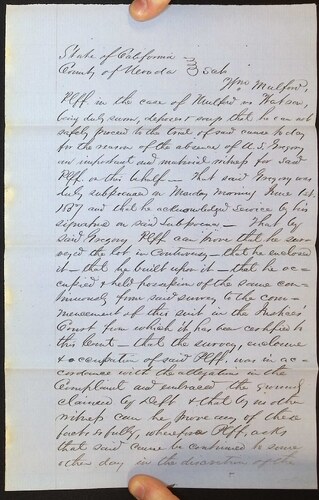 State of California
County of Nevada } ss
Wm Mulford,
Plff. in the case of Mulford vs Watson,
being duly sworn, deposes & says that he can not
safely proceed to the trial of said cause to day
for the reason of the absence of A. S. Gregory
an important and material witness for said
Plff. in this behalf — That said Gregory was
duly subpoened on Monday Morning June 1st
1857 and that he acknowledged service by his
signature on said Subpoena — That by
said Gregory Plff can prove that he sur-
veyed the lot in Controversy — that he enclosed
it — that he built upon it — that he oc-
cupied & held possession of the same con-
tinuously from said survey to the com-
mencement of this suit in the Justices
Court from which it has been certified to
this Court — that the survey, enclosure
& occupation of said Plff. was in ac-
cordance with the allegation in the
Complaint and embraced the ground
claimed by Deft & that by no other
witness can he prove any of these
facts so fully, wherefore Plff. asks
that said cause be continued to some
other day in the discretion of the